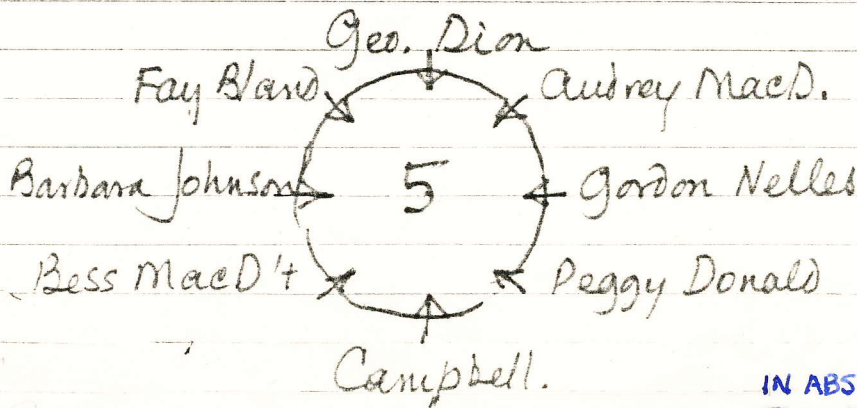 Geo. Dion
Fay Bland
Audrey MacD.
Barbara Johnson
5
Gordon Nelles
Bess MacD't
Peggy Donald
Campbell.
IN ABS